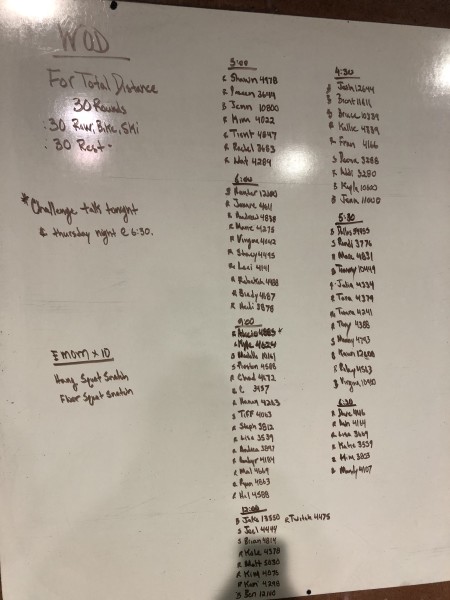 WOD
For Total Distance
30 Rounds
:30 Row, Bike, Ski
:30 Rest
* Challenge talk tonight
& thursday night @ 6:30.
EMOM x 10
Hang Squat Snatch
Floor Squat Snatch
5:00
Shawn 4978
3644
B Jenn 10800
R Kim 4022
Trent 4847
R Rachel 3683
R Walt 4284
6:00
12600
R Andrew 4838
R Marie 4275
R Virginia
R Stacy 4495
R Laci 4141
R Rebekah 4488
R Brady 4187
R Heidi 3878
9:00
4885 *
Kyle 4624
B Michelle
S Preston 4588
R Chad 4672
R C 3457
R Nancy 4263
S Tiff 4063
R Steph 3812
R Lisa 3539
R Andrea 3847
R Amber 4184
R Mal 4669
R Ryan 4863
R Hal 4588
12:00
B Jake 13550 R Twitch 4475
S Joel 4444
S Brian 4814
R Kale 4378
R Matt 5030
R King 4076
R Kari 4298
B Ben 12160
4:30
B Josh 12644
B Brent 11611
B Bruce 10389
R Kallie 4389
R Fran 4166
S 3288
R Addi 3280
B Kyla 10600
B Jenn 11000
5:30
S Randi 3776
R Mace 4831
B Tammy 10449
Julia 4334
R Tara 4379
R Tianna 4241
R Troy 4388
S Mandy 4793
B Kevin 12608
R Riley 4563
B Virginia 10940
6:30
R Dave
R Josh 4164
R Lisa 3669
R Katie 3539
R Kim 3803
R Mandy 4107